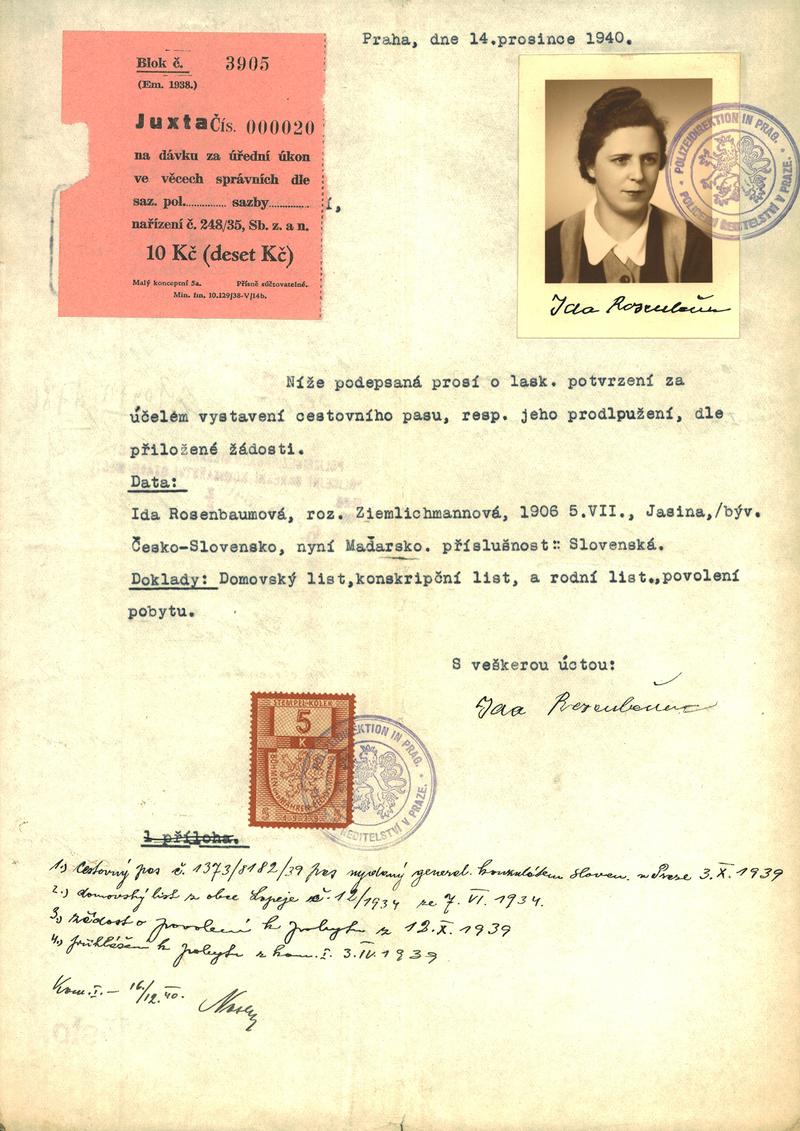 Praha, dne 14.prosince 1940.
Blok č. 3905
(Em. 1938.)
Juxta Čís. 000020
na dávku za úřední úkon
ve věcech správních dle
saz. pol............. sazby.............
nařízení č. 248/35, Sb. z. a n.
10 Kč (deset Kč)
Malý konceptní 5a. Přísně súčtovatelné.
Min. fin. 10.129/38-V/14b.
í,
POLIZEIDIREKTION IN PRAG.
POLICEJNÍ ŘEDITELSTVÍ V PRAZE.
Ida Rosenbaum
Níže podepsaná prosí o lask. potvrzení za
účelém vystavení cestovního pasu, resp. jeho prodlpužení, dle
přiložené žádosti.
Data:
Ida Rosenbaumová, roz. Ziemlichmannová, 1906 5.VII., Jasina,/býv.
Česko-Slovensko, nyní Maďarsko. příslušnost: Slovenská.
Doklady: Domovský list,konskripční list, a rodní list.,povolení
pobytu.
S veškerou úctou:
Ida Rosenbaum
STEMPEL-KOLEK
5
K
DIREKTION IN PRAG.
ŘEDITELSTVÍ V PRAZE.
1 příloha.
1.) Cestovný pas č. 1373/8182/39 pas vydaný general. konzulátem sloven. v Praze 3.X.1939
2.) domovský list z obce č. 12/1934 ze 7. VI. 1934.
3.) žádost o povolení k pobytu z 12.X.1939
4.) přihlášení k pobytu z kom. I. 3.IV.1939
Kom. I. - 16/12.40.